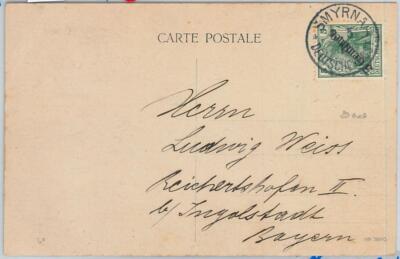 CARTE POSTALE
SMYRNA
DEUTSCHE
Herrn
Ludwig Weiss
Reichertshofen II.
b/ Ingolstadt
Bayern